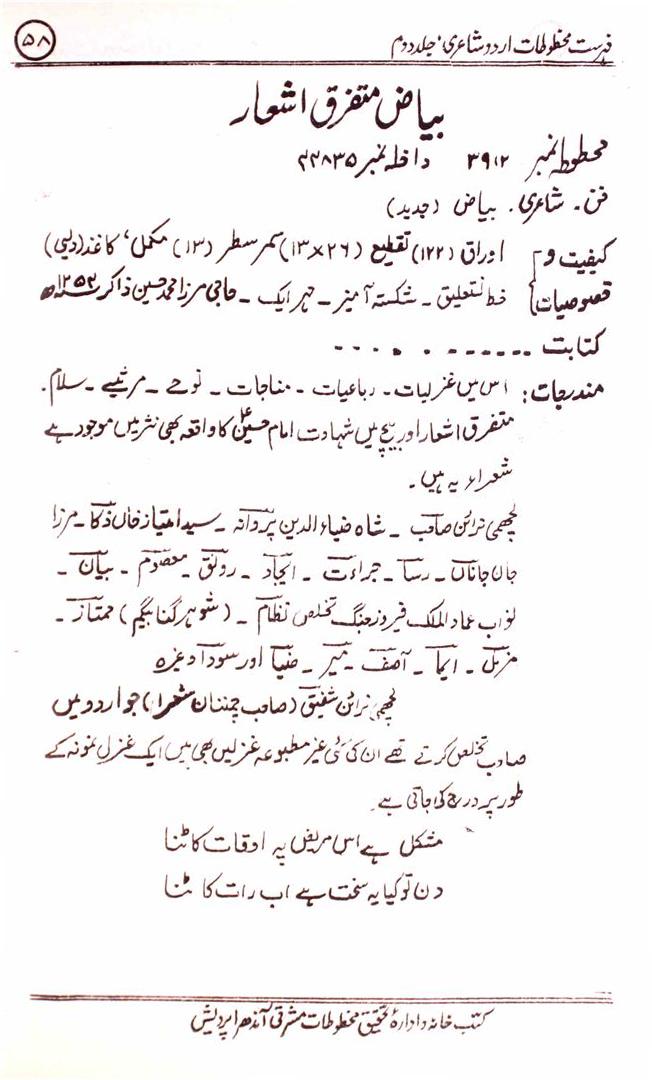 ۵۸
فہرست مخطوطات اردو شاعری، جلد دوم
بیاض متفرق اشعار
مخطوطہ نمبر ۳۹۱۲ داخلہ نمبر ۲۲۸۳۵
فن۔ شاعری۔ بیاض (جدید)
کیفیت و اوراق (۱۲۲) تقطیع (۲۶×۱۳) سطر (۱۳) مکمل، کاغذ (دیسی)
خصوصیات خط نستعلیق۔ شکستہ آمیز۔ مہر ایک۔ حاجی مرزا محمد حسین ذاکر ۱۲۵۳ھ
کتابت ۔۔۔۔۔۔۔۔۔۔۔۔
مندرجات: اس میں غزلیات۔ رباعیات۔ مناجات۔ نوحے۔ مرثیے۔ سلام۔
متفرق اشعار اور بیچ میں شہادت امام حسینؑ کا واقعہ بھی نثر میں موجود ہے
شعراء یہ ہیں۔
لچھمی نرائن صاحب۔ شاہ ضیاء الدین پروانہ۔ سید امتیاز خاں ذکا۔ مرزا
جان جاناں۔ رسا۔ جراءت۔ ایجاد۔ رونق۔ معصوم۔ بیان۔
نواب عماد الملک فیروز جنگ تخلص نظام۔ (شوہر گنا بیگم) ممتاز۔
مزمل۔ ایما۔ آصف۔ میر۔ ضیا اور سودا وغیرہ
لچھمی نرائن شفیق (صاحب چمنستان شعراء) جو اردو میں
صاحب تخلص کرتے تھے ان کی کئی غیر مطبوعہ غزلیں بھی ہیں ایک غزل نمونہ کے
طور پر درج کی جاتی ہے۔
مشکل ہے اس مریض پہ اوقات کاٹنا
دن تو کیا یہ سخت ہے اب رات کاٹنا
کتب خانہ و ادارۂ تحقیق مخطوطات مشرقی آندھرا پردیش